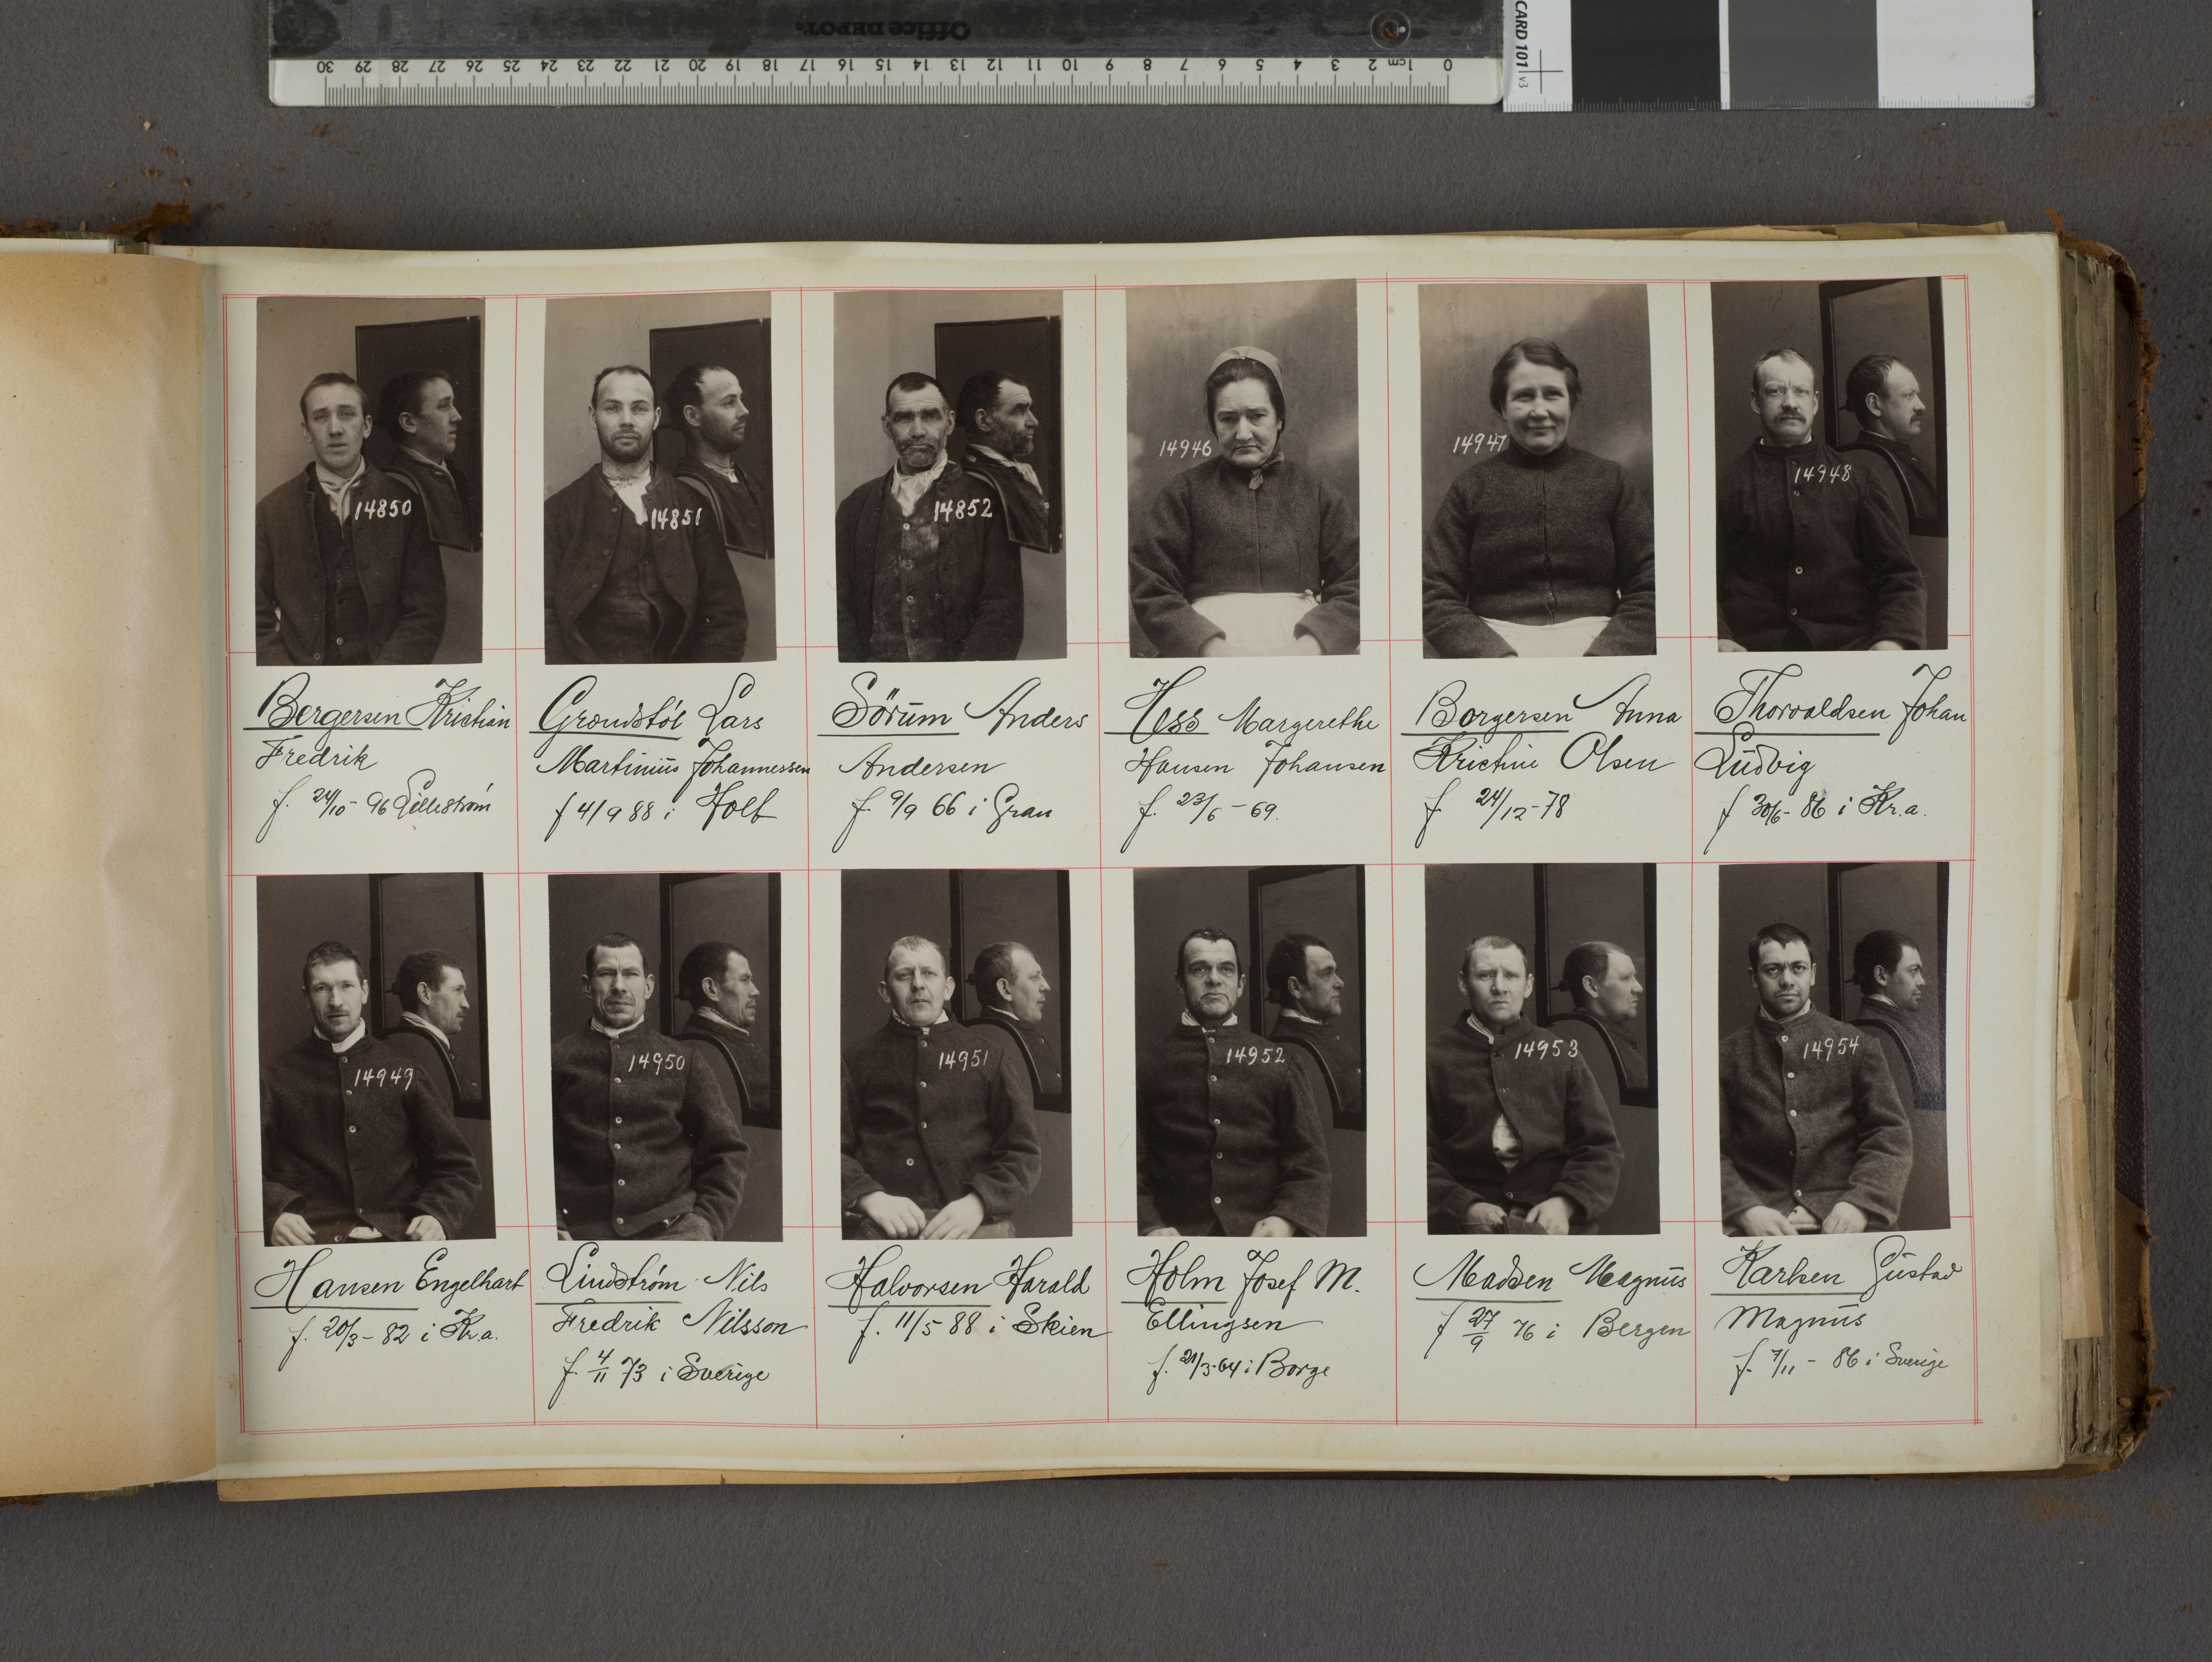 Office DEPOT.
0 1cm 2 3 4 5 6 7 8 9 10 11 12 13 14 15 16 17 18 19 20 21 22 23 24 25 26 27 28 29 30
CARD 101 v3
14850
14851
14852
14946
14947
14948
Bergersen Kristian
Fredrik
f. 24/10 - 96 Lillestrøm
Grøndstøl Lars
Martinius Johannessen
f 4/9 88 i Holt
Sörum Anders
Andersen
f. 9/9 66 i Gran
Hess Margerethe
Hansen Johansen
f. 23/6 - 69.
Borgersen Anna
Kristine Olsen
f 24/12 - 78
Thorvaldsen Johan
Ludvig
f 30/6 - 86 i Kr.a.
14949
14950
14951
14952
14953
14954
Hansen Engelhart
f. 20/3 - 82 i Kr.a.
Lindstrøm Nils
Fredrik Nilsson
f. 4/11 73 i Sverige
Halvorsen Harald
f. 11/5 88 i Skien
Holm Josef M.
Ellingsen
f. 21/3-64 i Borge
Madsen Magnus
f 27/9 76 i Bergen
Karlsen Gustav
Magnus
f. 7/11 - 86 i Sverige